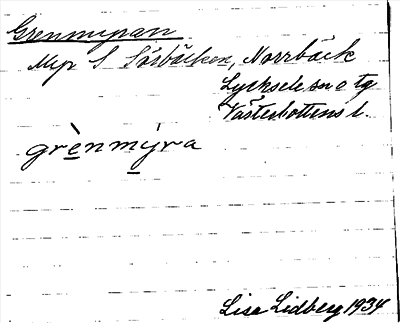 Grenmyran
Myr S Låsbäcken, Norrbäck
Lycksele sn o tg
Västerbottens l.
grènmýra
Lisa Lidberg 1934